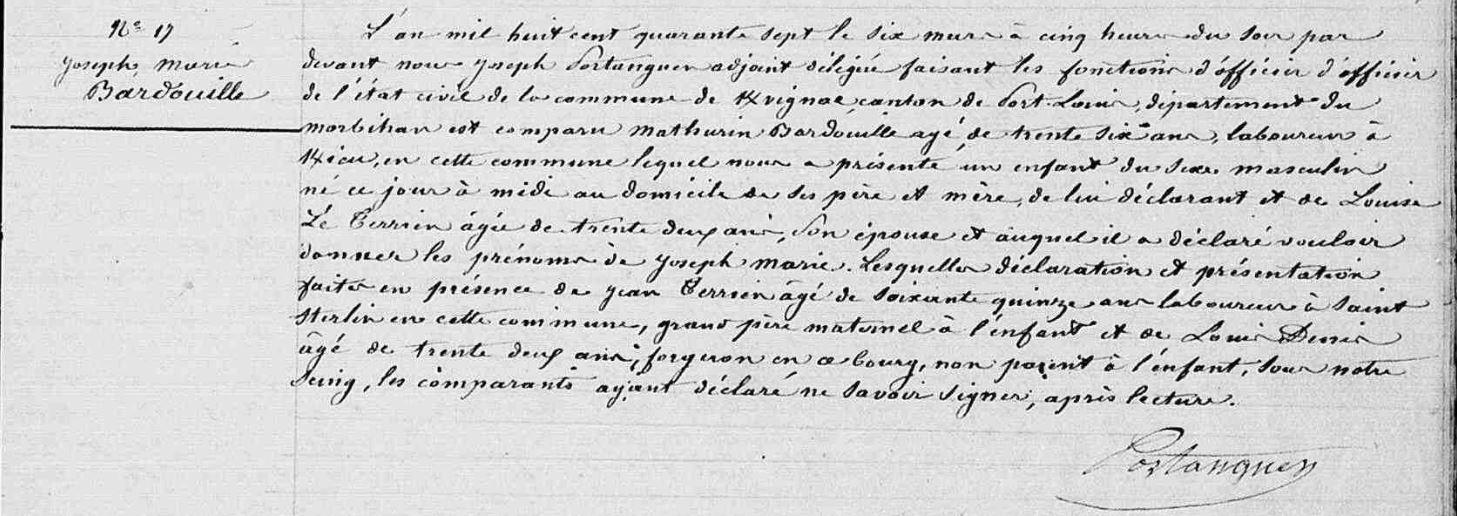 No 17
Joseph, Marie
Bardouille
L'an mil huit cent quarante sept le six mars à cinq heures du soir par
devant nous Joseph Portanguen adjoint délégué faisant les fonctions d'officier d'officier
de l'état civil de la commune de Kvignac, canton de Port-Louis, département du
morbihan est comparu Mathurin Bardouille agé de trente six ans, laboureur à
en cette commune lequel nous a présenté un enfant du sexe masculin
né ce jour à midi au domicile de ses père et mère, de lui déclarant et de Louise
Le Terrien âgée de trente deux ans, son épouse et auquel il a déclaré vouloir
donner les prénoms de Joseph Marie. Lesquelles déclaration et présentation
faites en présence de Jean Terrien âgé de soixante quinze ans laboureur à Saint
Sterlin en cette commune, grand père maternel à l'enfant et de Louis Denis
âgé de trente deux ans, forgeron en ce bourg, non parent à l'enfant, sous notre
seing, les comparants ayant déclaré ne savoir signer, après lecture.
Portanguen